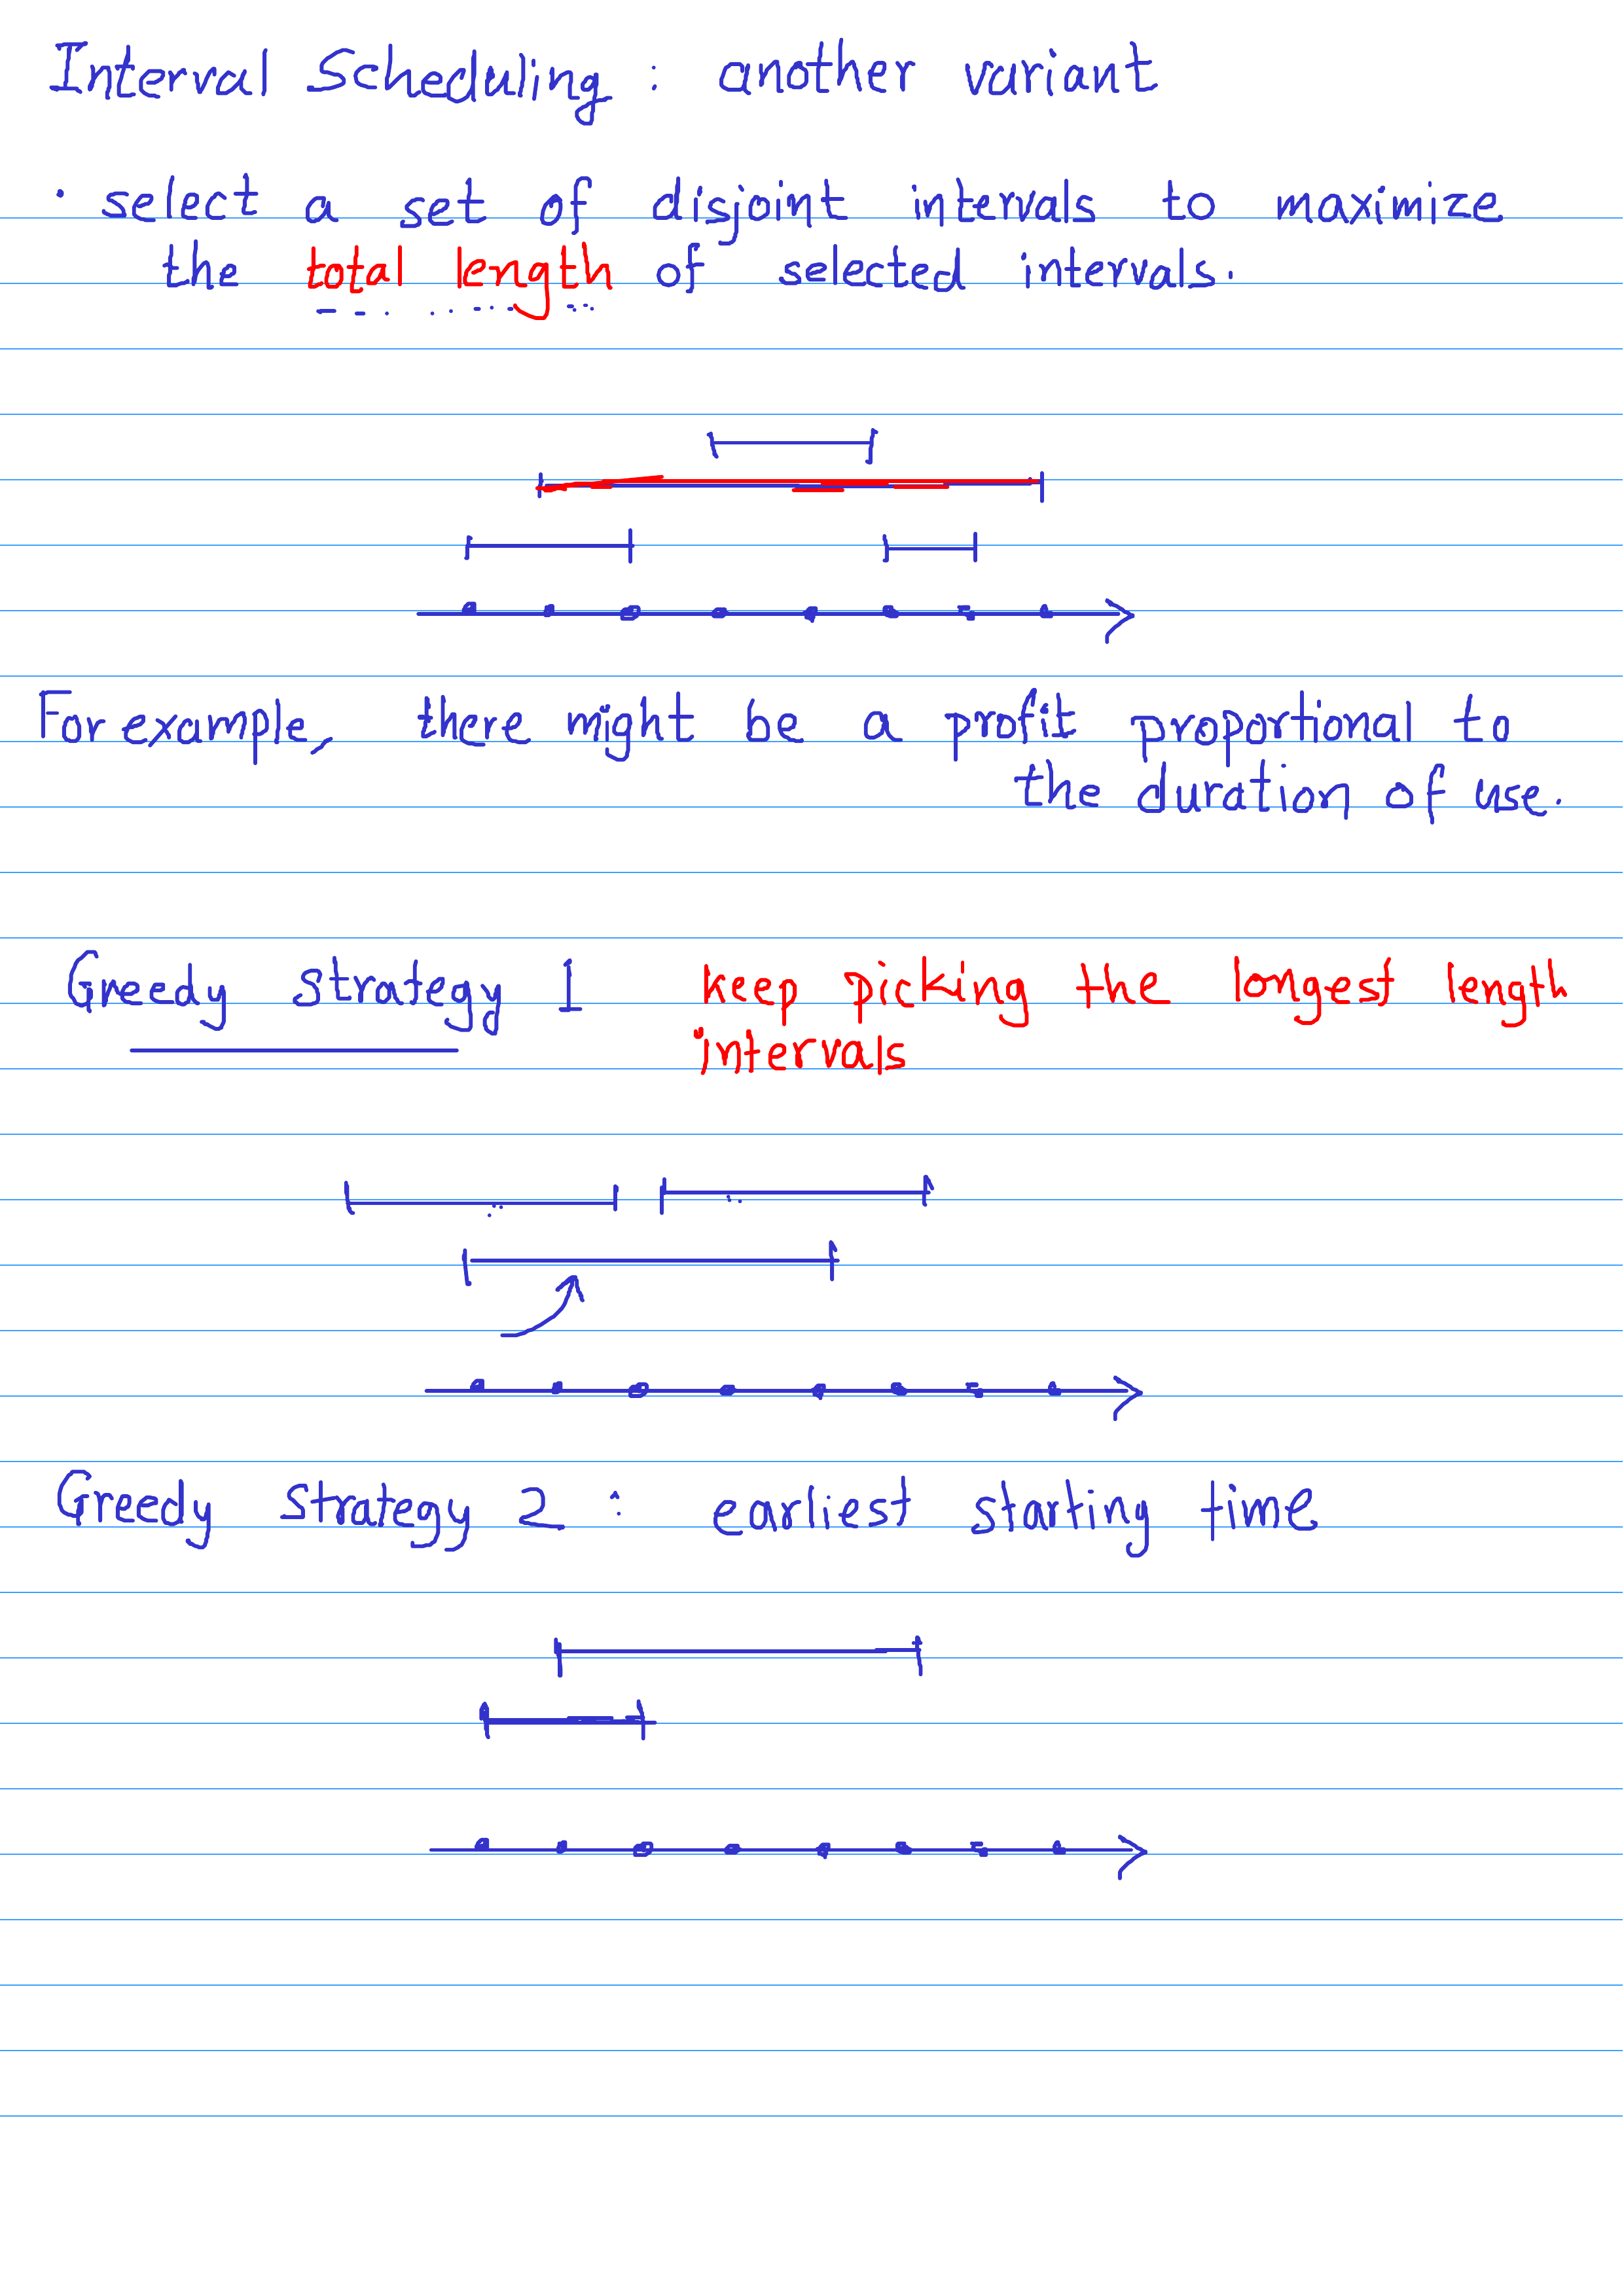 Interval Scheduling : another variant
· select a set of disjoint intervals to maximize
the total length of selected intervals.
For example, there might be a profit proportional to
the duration of use.
Greedy strategy 1 keep picking the longest length
intervals
Greedy strategy 2 : earliest starting time